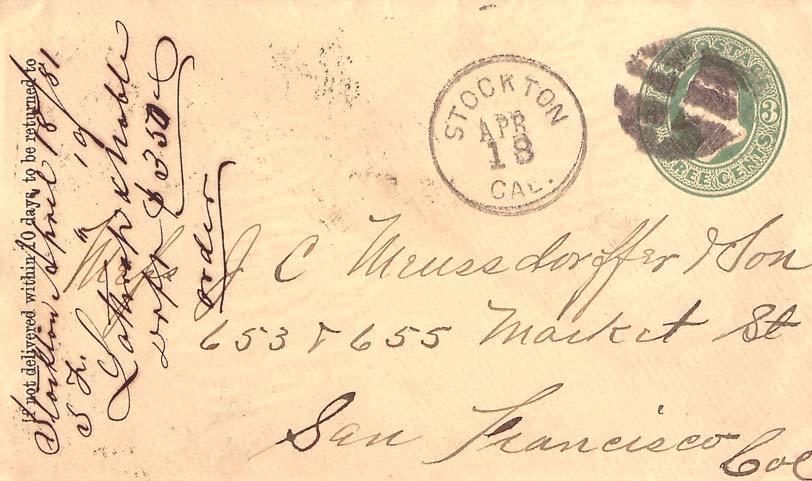 If not delivered within 10 days, to be returned to
Stockton April 18/81
STOCKTON
APR
18
CAL.
U.S. POSTAGE
3
THREE CENTS
Mess J C Meussdorffer & Son
653 & 655 Market St
San Francisco Cal
$350
order